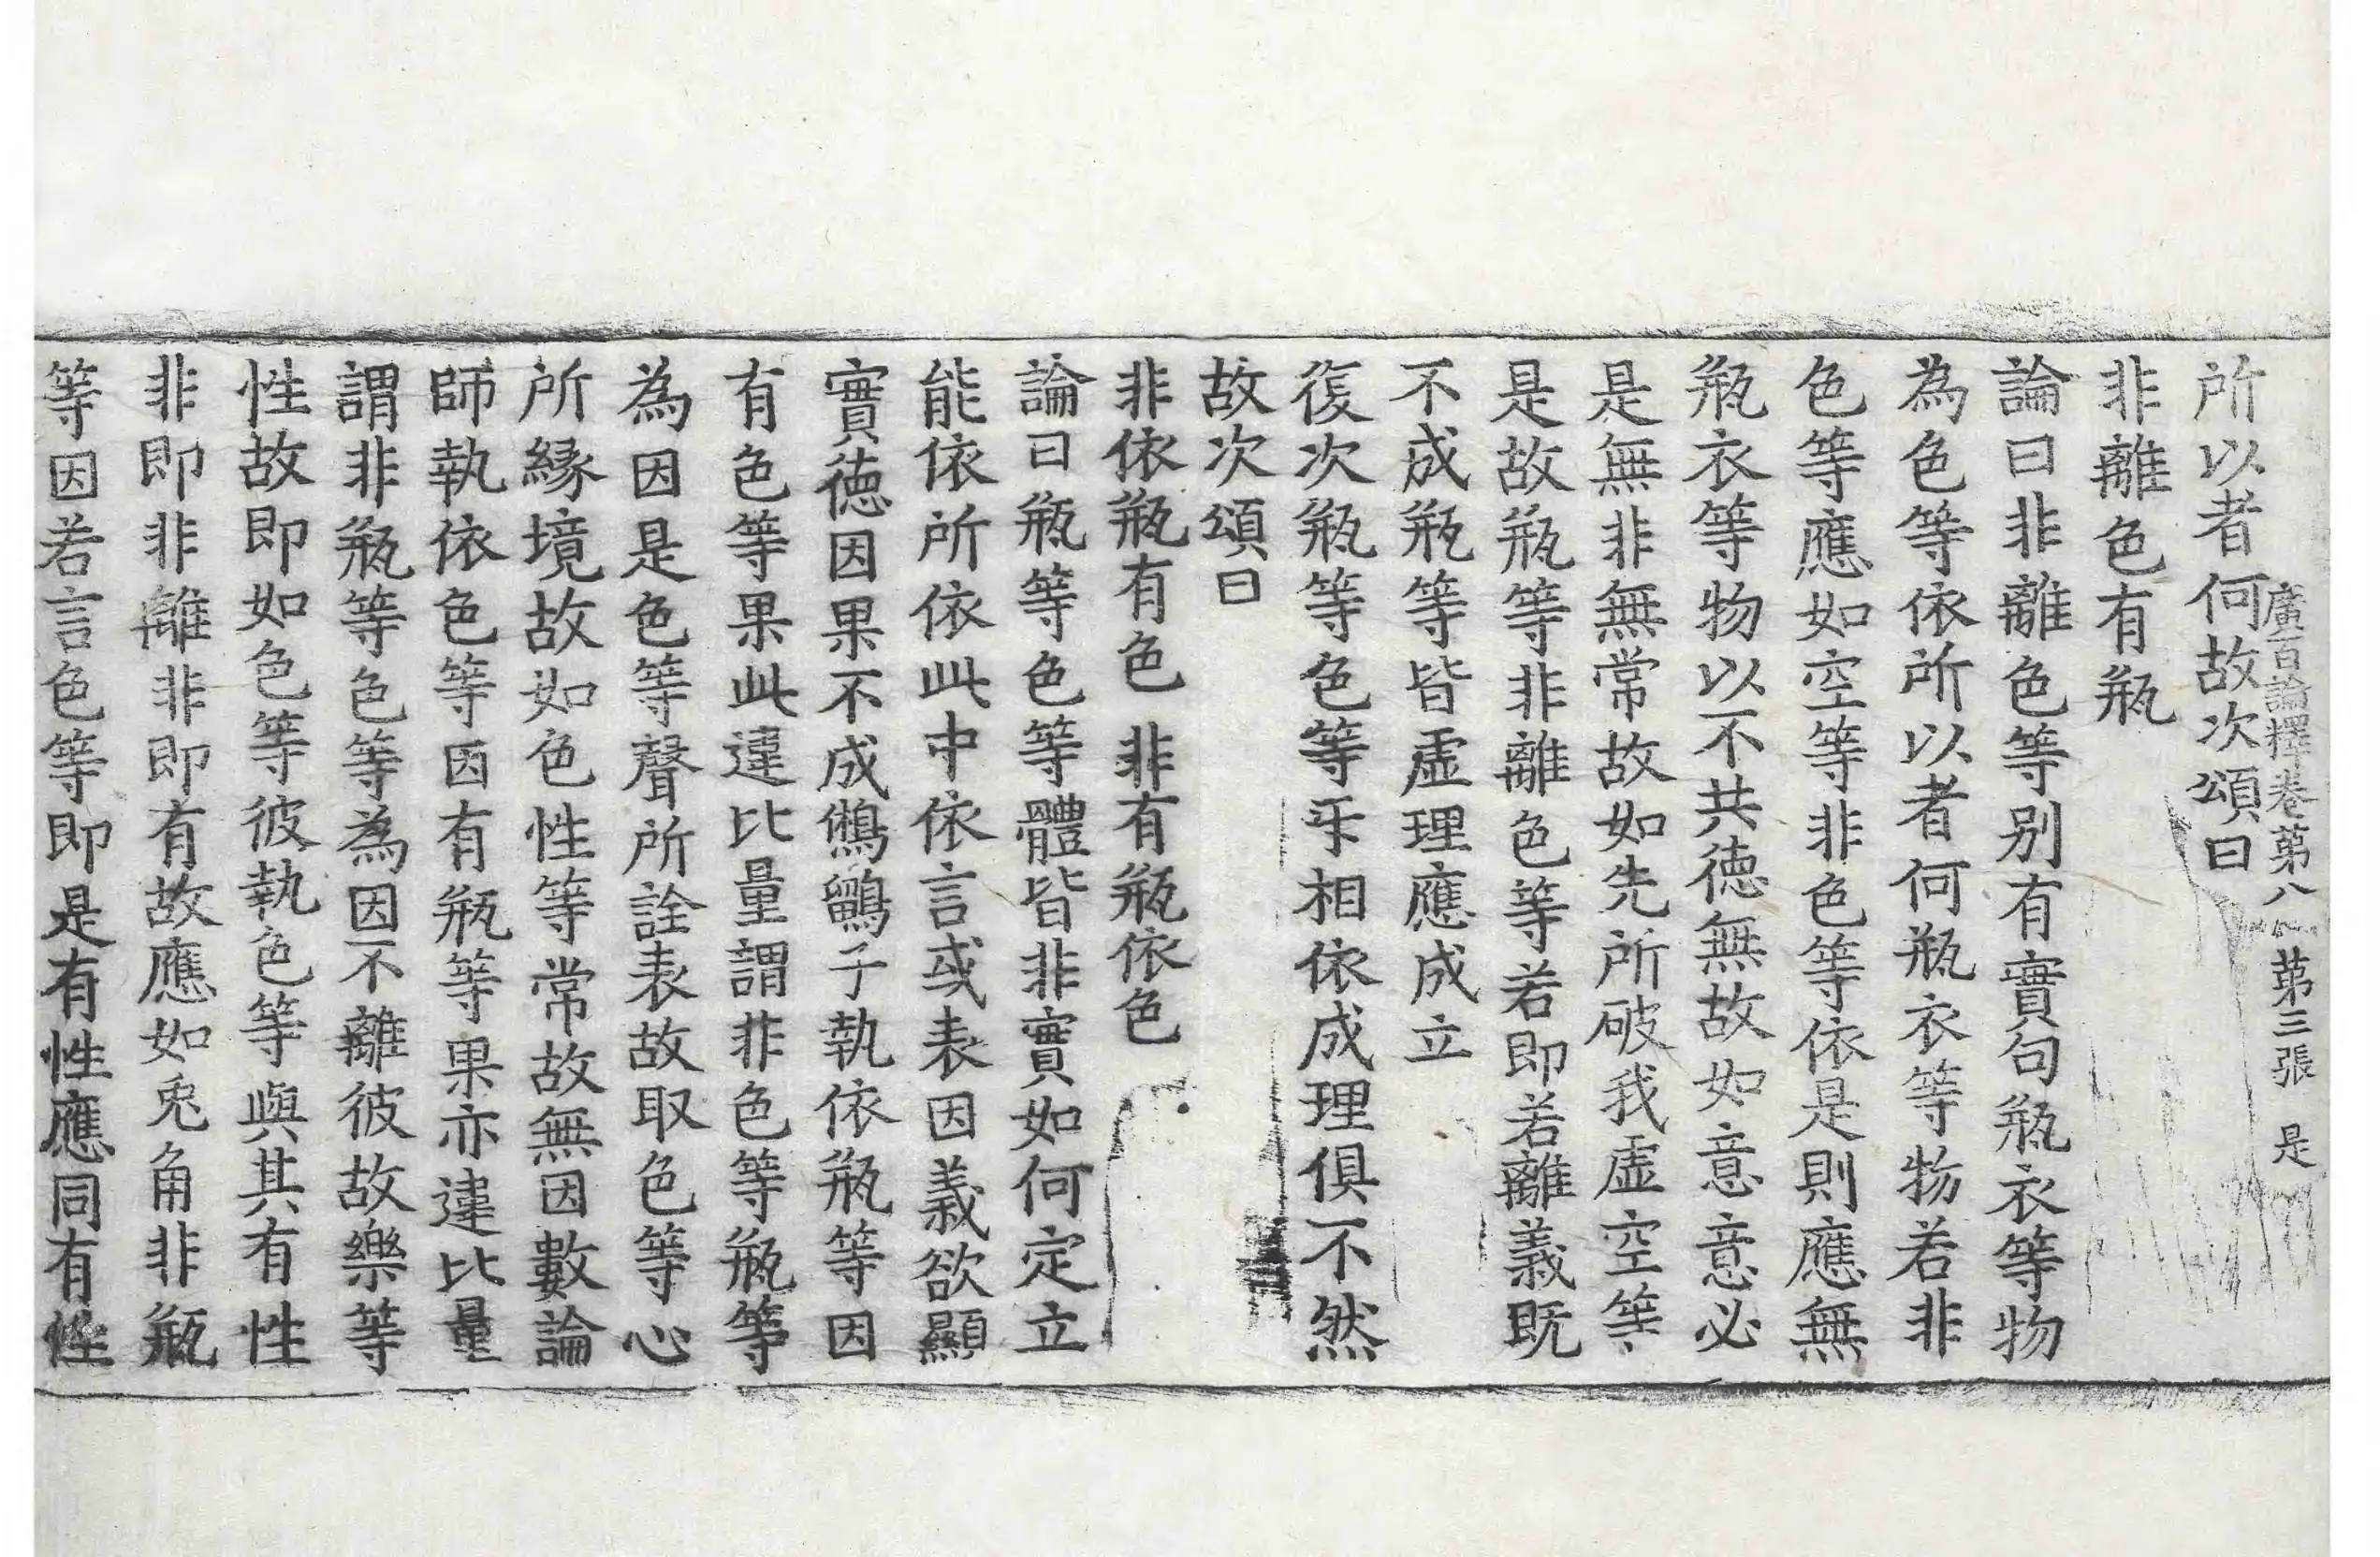 廣百論釋卷第八 第三張 是
所以者何故次頌曰
非離色有瓶
論曰非離色等別有實句瓶衣等物
為色等依所以者何瓶衣等物若非
色等應如空等非色等依是則應無
瓶衣等物以不共徳無故如意意必
是無非無常故如先所破我虛空等
是故瓶等非離色等若即若離義既
不成瓶等皆虛理應成立
復次瓶等色等乐相依成理俱不然
故次頌曰
非依瓶有色 非有瓶依色
論曰瓶等色等體皆非實如何定立
能依所依此中依言或表因義欲顯
實徳因果不成鵂鶹子執依瓶等因
有色等果此違比量謂非色等瓶等
為因是色等聲所詮表故取色等心
所縁境故如色性等常故無因數論
師執依色等因有瓶等果亦違比量
謂非瓶等色等為因不離彼故樂等
性故即如色等彼執色等與其有性
非即非離非即有故應如兎角非瓶
等因若言色等即是有性應同有性